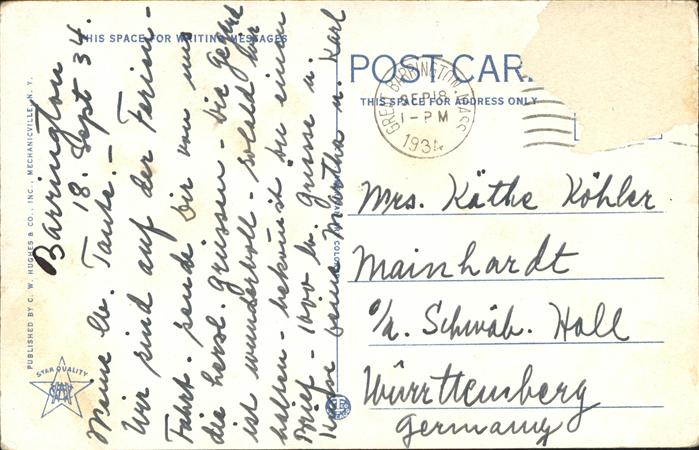 THIS SPACE FOR WRITING MESSAGES
POST CAR
THIS SPACE FOR ADDRESS ONLY
GREAT BARRINGTON, MASS
SEP 18
1 - PM
1934
Barrington
18. Sept 34.
Meine lb. Tante. -
Wir sind auf der Ferien-
Fahrt. sende Dir von uns
die herzl. Grüssen - die Gegend
ist wundervoll - sobald wir
halten - bekomst du einen
Brief - 1000 lb. Grüsse u.
Küsse deine Martha u. Karl
Mrs. Käthe Köhler
Mainhardt
o/a. Schwäb. Hall
Württemberg
Germany
PUBLISHED BY C. W. HUGHES & CO., INC., MECHANICVILLE, N. Y.
STAR QUALITY